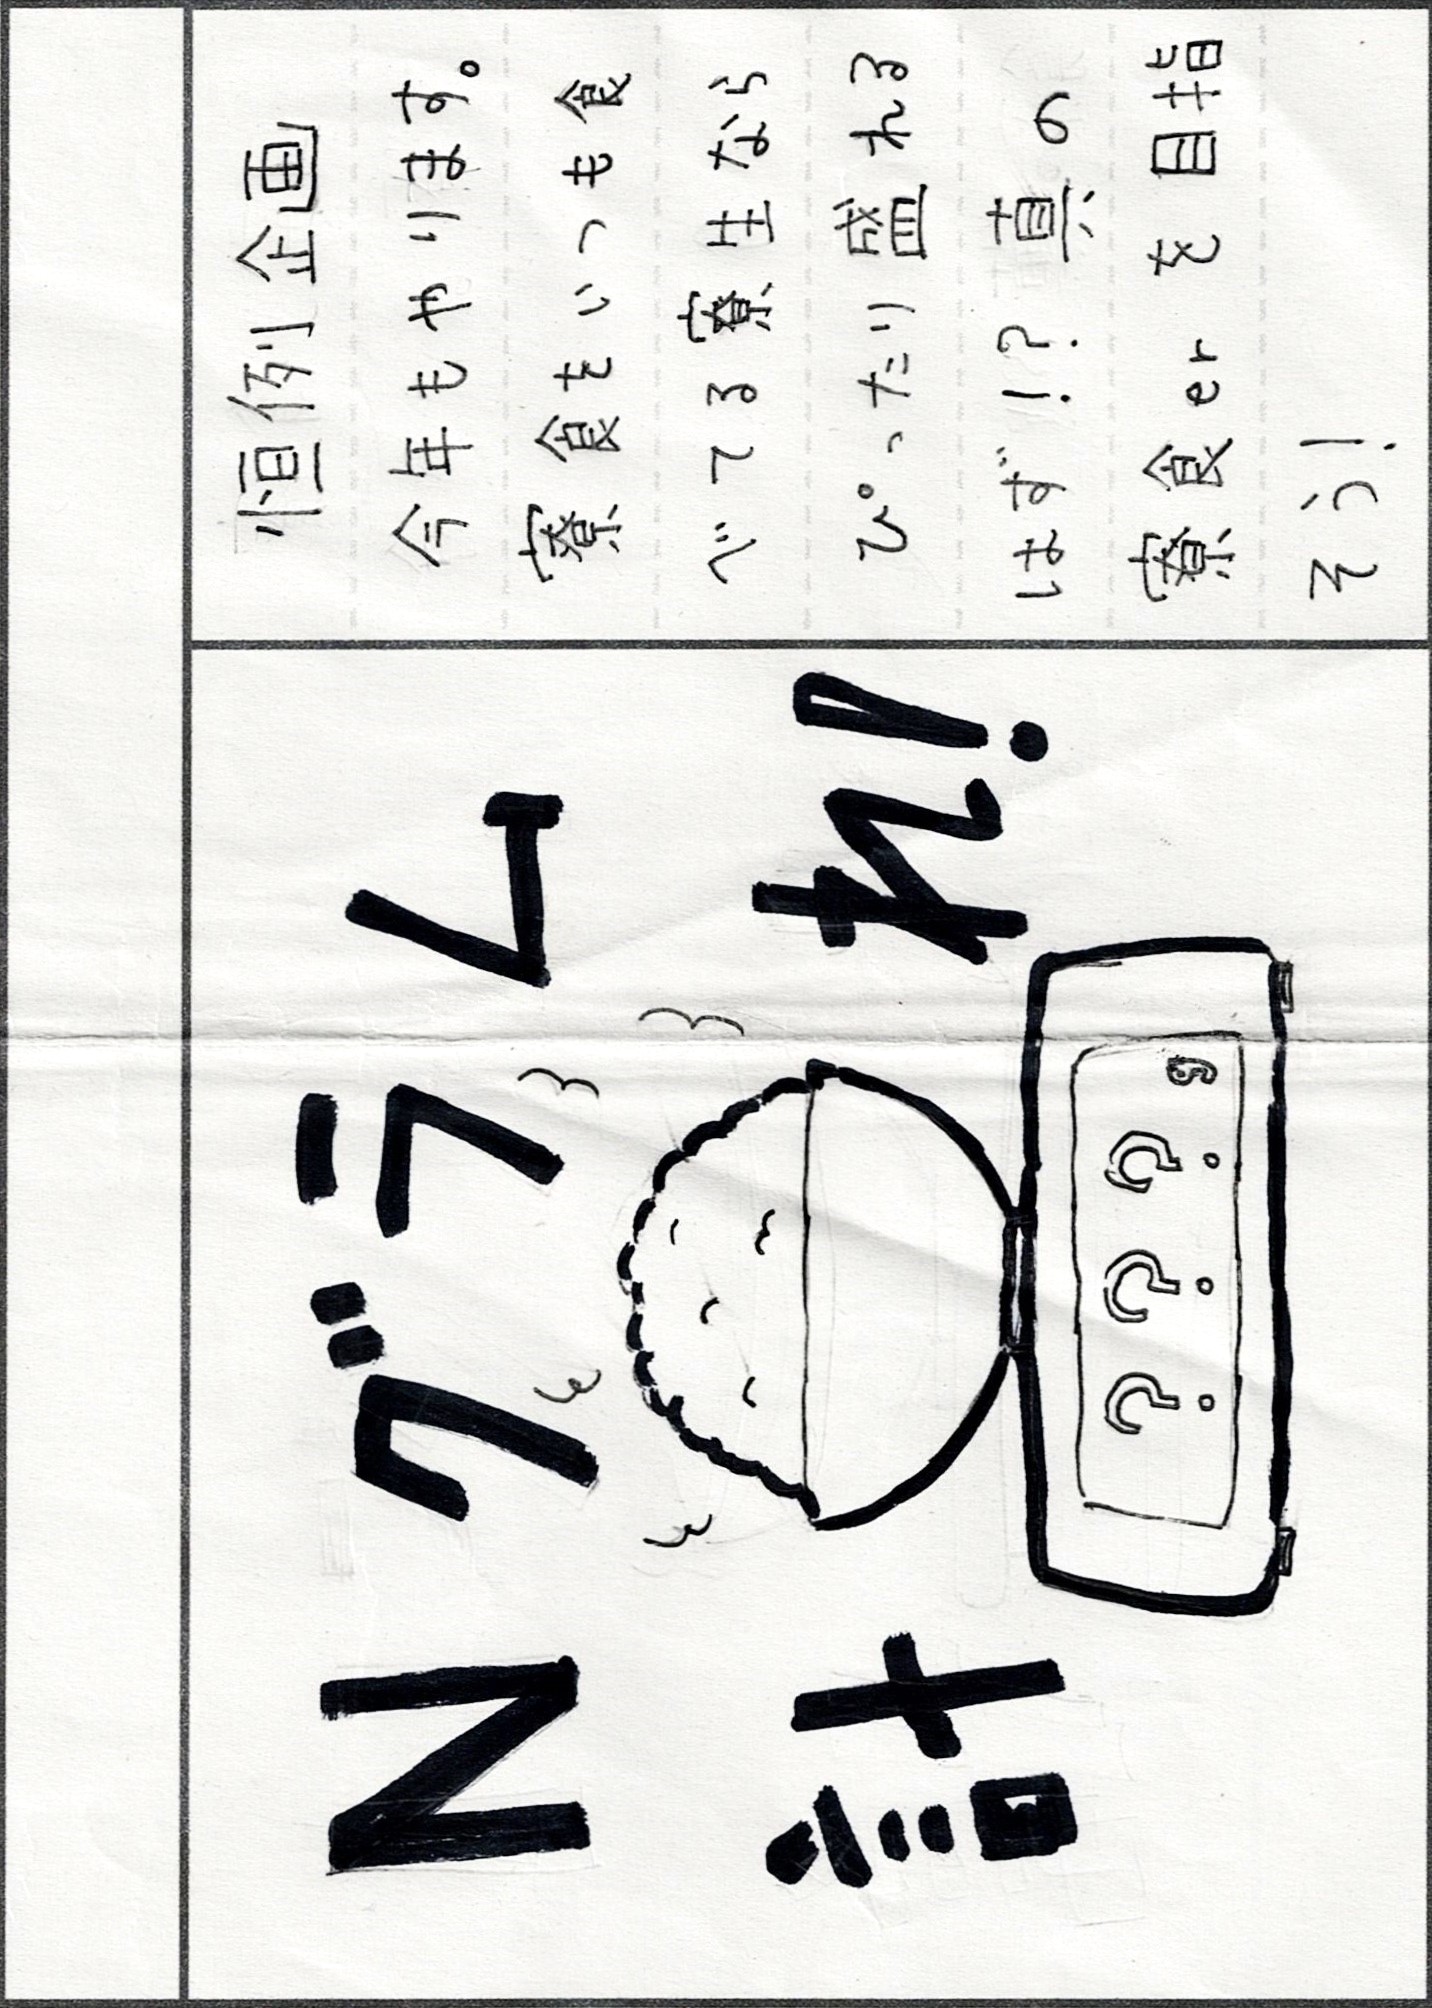 Nグラム
計れ!
???g
恒例企画
今年もやります。
寮食をいつも食
べてる寮生なら
ぴったり盛れる
はず!?真の
寮食erを目指
そう!